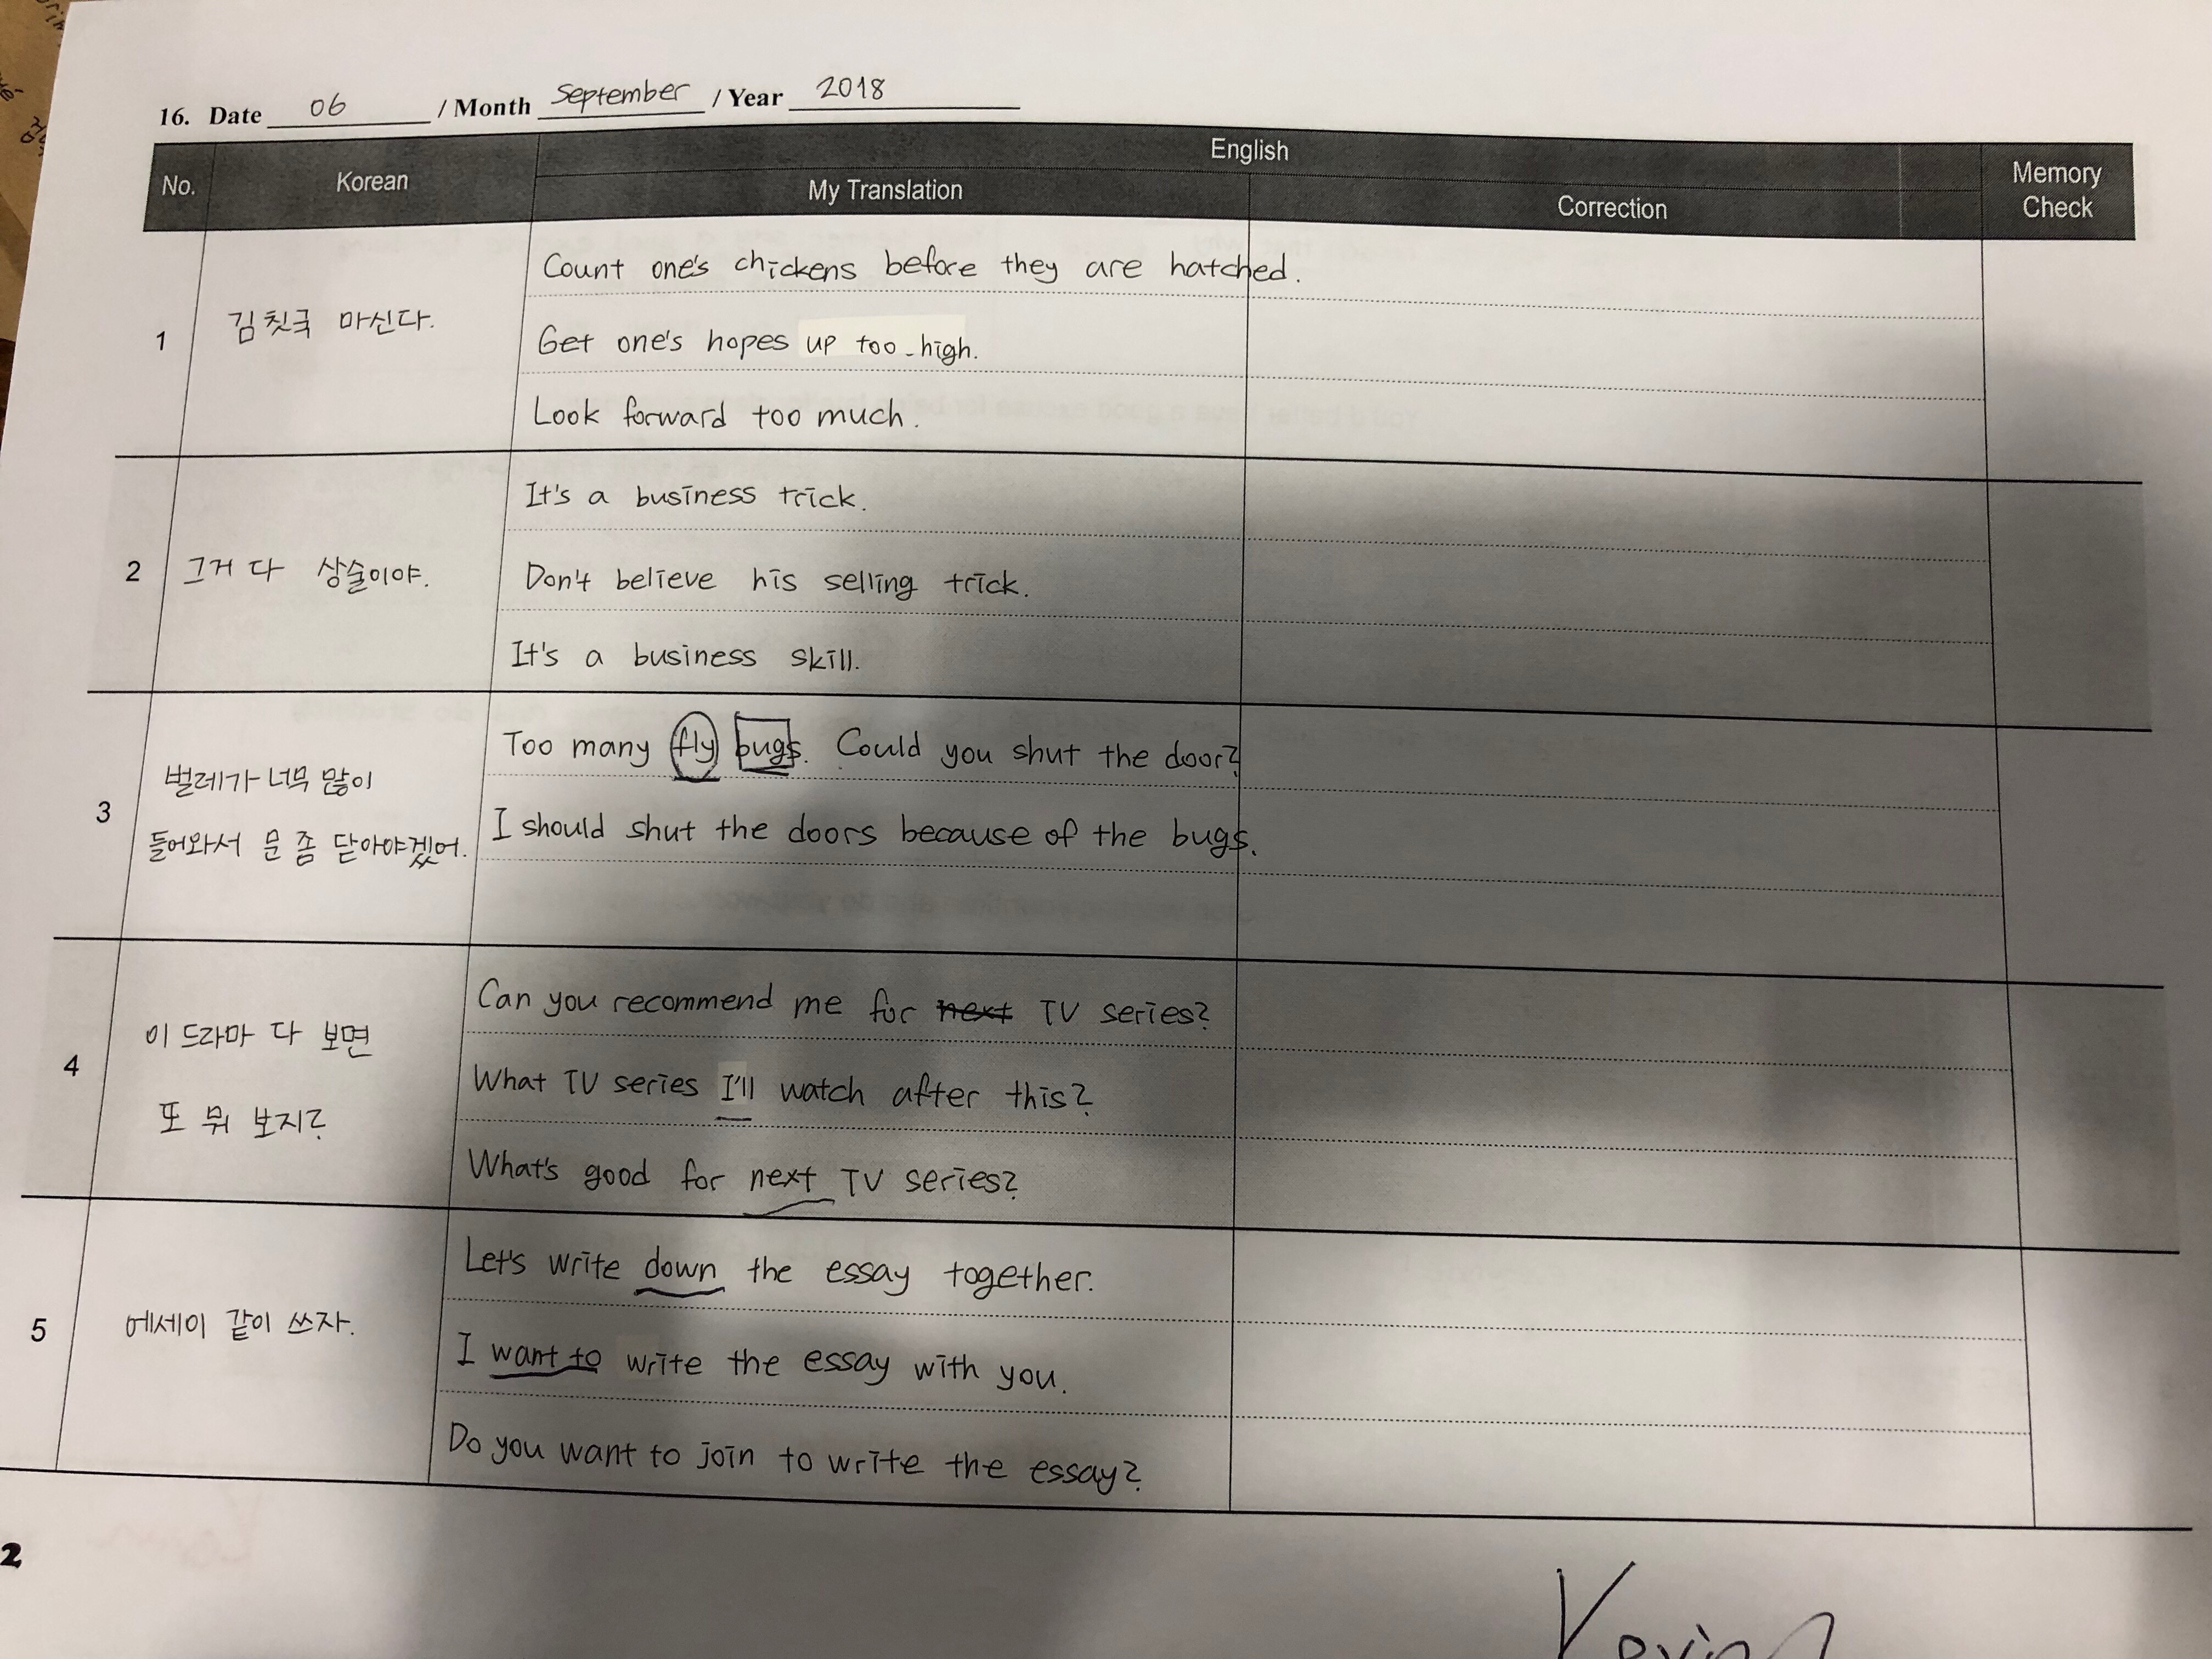 16. Date 06 / Month September / Year 2018
No.
Korean
English
My Translation
Correction
Memory Check
1
김칫국 마신다.
Count one's chickens before they are hatched.
Get one's hopes up too high.
Look forward too much.
2
그거 다 상술이야.
It's a business trick.
Don't believe his selling trick.
It's a business skill.
3
벌레가 너무 많이
들어와서 문 좀 닫아야겠어.
Too many fly bugs. Could you shut the door?
I should shut the doors because of the bugs.
4
이 드라마 다 보면
또 뭐 보지?
Can you recommend me for next TV series?
What TV series I'll watch after this?
What's good for next TV series?
5
에세이 같이 쓰자.
Let's write down the essay together.
I want to write the essay with you.
Do you want to join to write the essay?
2